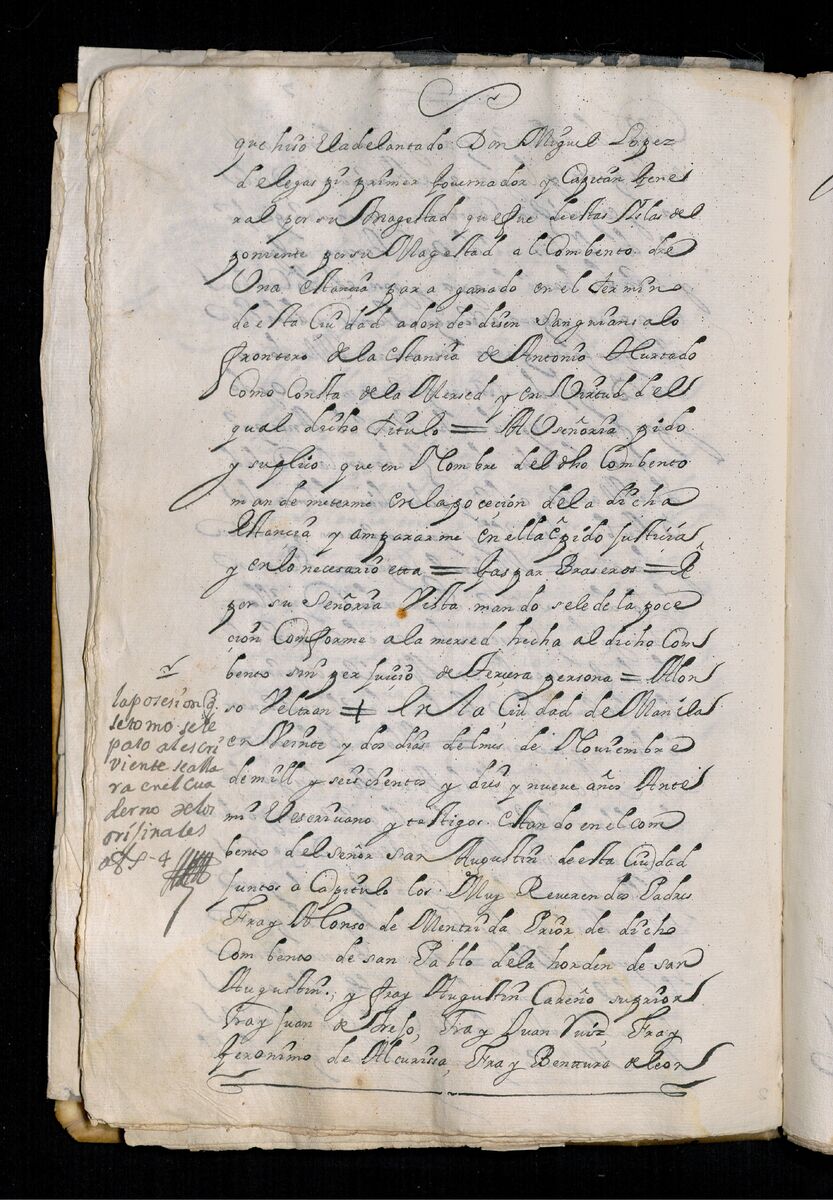 que hiso El adelantado Don Miguel Lopez
de legaspi primer Governador y Capitan Gene
ral por su Magestad que fue de estas Yslas del
poniente por su Magestad al Combento de
Una estancia para ganado en el termino
de esta Ciudad adonde disen Sanguians a lo
frontero de la estansia de Antonio Hurtado
Como Consta de la Mersed y en Virtud del
qual dicho titulo = A VSeñoria pido
y suplico que en Nombre del dho Combento
mande meterme en la poceçion de la dicha
Estancia y ampararme en ella pido justicia
y en lo necesario etta = Gaspar Braseros =
por su Señoria Vista mando se le de la poce
cion Conforme a la mersed hecha al dicho Com
bento sin perjuicio de Tercera persona = Alon
so Veltran ‡ En la Ciudad de Manila
en Veinte y dos dias del mes de Noviembre
de mill y seiscientos y dies y nueve años Ante
mi Escriuano y testigos estando en el com
bento del señor san Augustin de esta Ciudad
juntos a Capitulo los Muy Reverendos Padres
Fray Alonso de Mentrida Prior de dicho
Combento de san Pablo de la horden de san
Augustin, y fray Augustin Careño suprior
Fray Juan de, Fray Juan Ruiz, Fray
Geronimo de, Fray Benaura de leon
la posesion q.
se tomo se le
paso al escri
viente se alla
ra en el cua
derno de los
orijinales
a fs 4